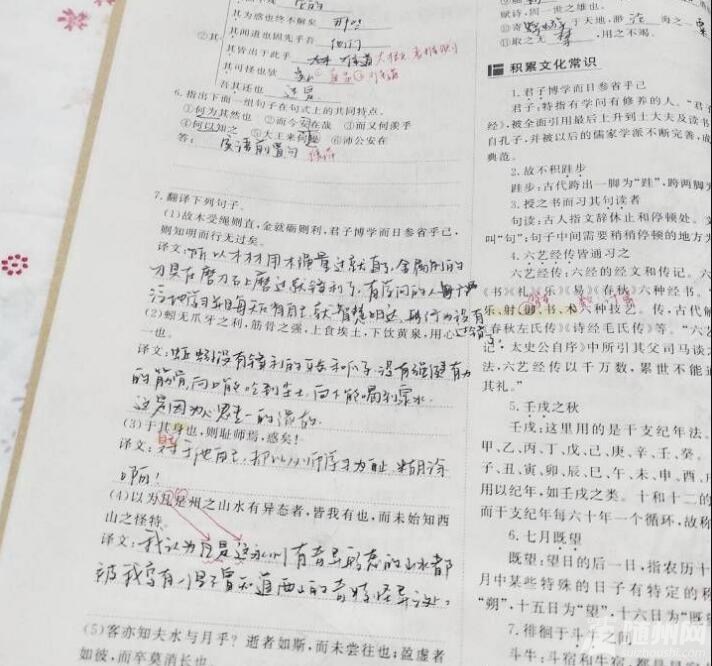 其为惑也终不解矣 那些
②其 其闻道也固先乎吾 他们
其皆出于此乎
其可怪也欤
吾其还也 还是
6.指出下面一组句子在句式上的共同特点。
①何为其然也 ②而今安在哉 ③而又何羡乎
④何以知之 ⑤大王来何操 ⑥沛公安在
答: 宾语前置句
7.翻译下列句子。
(1)故木受绳则直,金就砺则利,君子博学而日参省乎己,
则知明而行无过矣。
译文:所以木材用木绳量过就直了,金属制的
刀具在磨刀石上磨过就锋利了,有学问的人
(2)蚓无爪牙之利,筋骨之强,上食埃土,下饮黄泉,用心
一也。
译文:蚯蚓没有锋利的 和爪子,没有强健有力
的筋骨,向上能吃到尘土,向下能喝到泉水
这是因为心思专一的缘故
(3)于其身也,则耻师焉,惑矣!
译文:对于他自己,却以从师学习为耻,糊涂
啊!
(4)以为凡是州之山水有异态者,皆我有也,而未始知西
山之怪特。
译文:我认为凡是这永州有奇异形态的山水都
被我享有,
(5)客亦知夫水与月乎?逝者如斯,而未尝往也;盈虚者
如彼,而卒莫消长也
赋诗,固一世之雄也。
于天地,渺 沧 海之 粟
⑪取之无 禁 ,用之不竭。
积累文化常识
1.君子博学而日参省乎己
君子:特指有学问有修养的人。“君子
经》,被全面引用最后上升到士大夫及读书
自孔子,并被以后的儒家学派不断完善,成
典范。
2.故不积跬步
跬步:古代跨出一脚为“跬”,跨两脚为
3.授之书而习其句读者
句读:古人指文辞休止和停顿处。文
叫“句”;句子中间需要稍稍停顿的地方为
4.六艺经传皆通习之
六艺经传:六经的经文和传记。六
《书》《礼》《乐》《易》《春秋》六种经书。
乐、射、御、书、术六种技艺。传,古代解
《春秋左氏传》《诗经毛氏传》等。“六艺
记·太史公自序》中所引其父司马谈之
法,六艺经传以千万数,累世不能通
其礼。”
5.壬戌之秋
壬戌:这里用的是干支纪年法。
甲、乙、丙、丁、戊、己、庚、辛、壬、癸。
子、丑、寅、卯、辰、巳、午、未、申、酉、
用以纪年,如壬戌之类。十和十二的
而干支纪年每六十年一个循环,故称
6.七月既望
既望:望日的后一日,指农历十
月中某些特殊的日子有特定的称
“朔”,十五日为“望”,十六日为“既望
7.徘徊于斗牛之间
斗牛:斗宿和牛宿
随州网